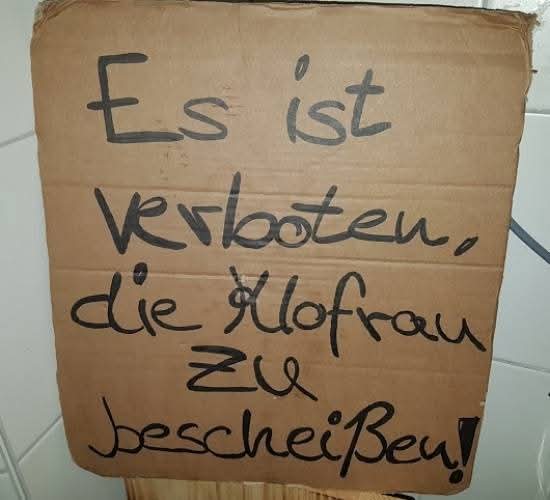 Es ist
verboten,
die Klofrau
zu
bescheißen!